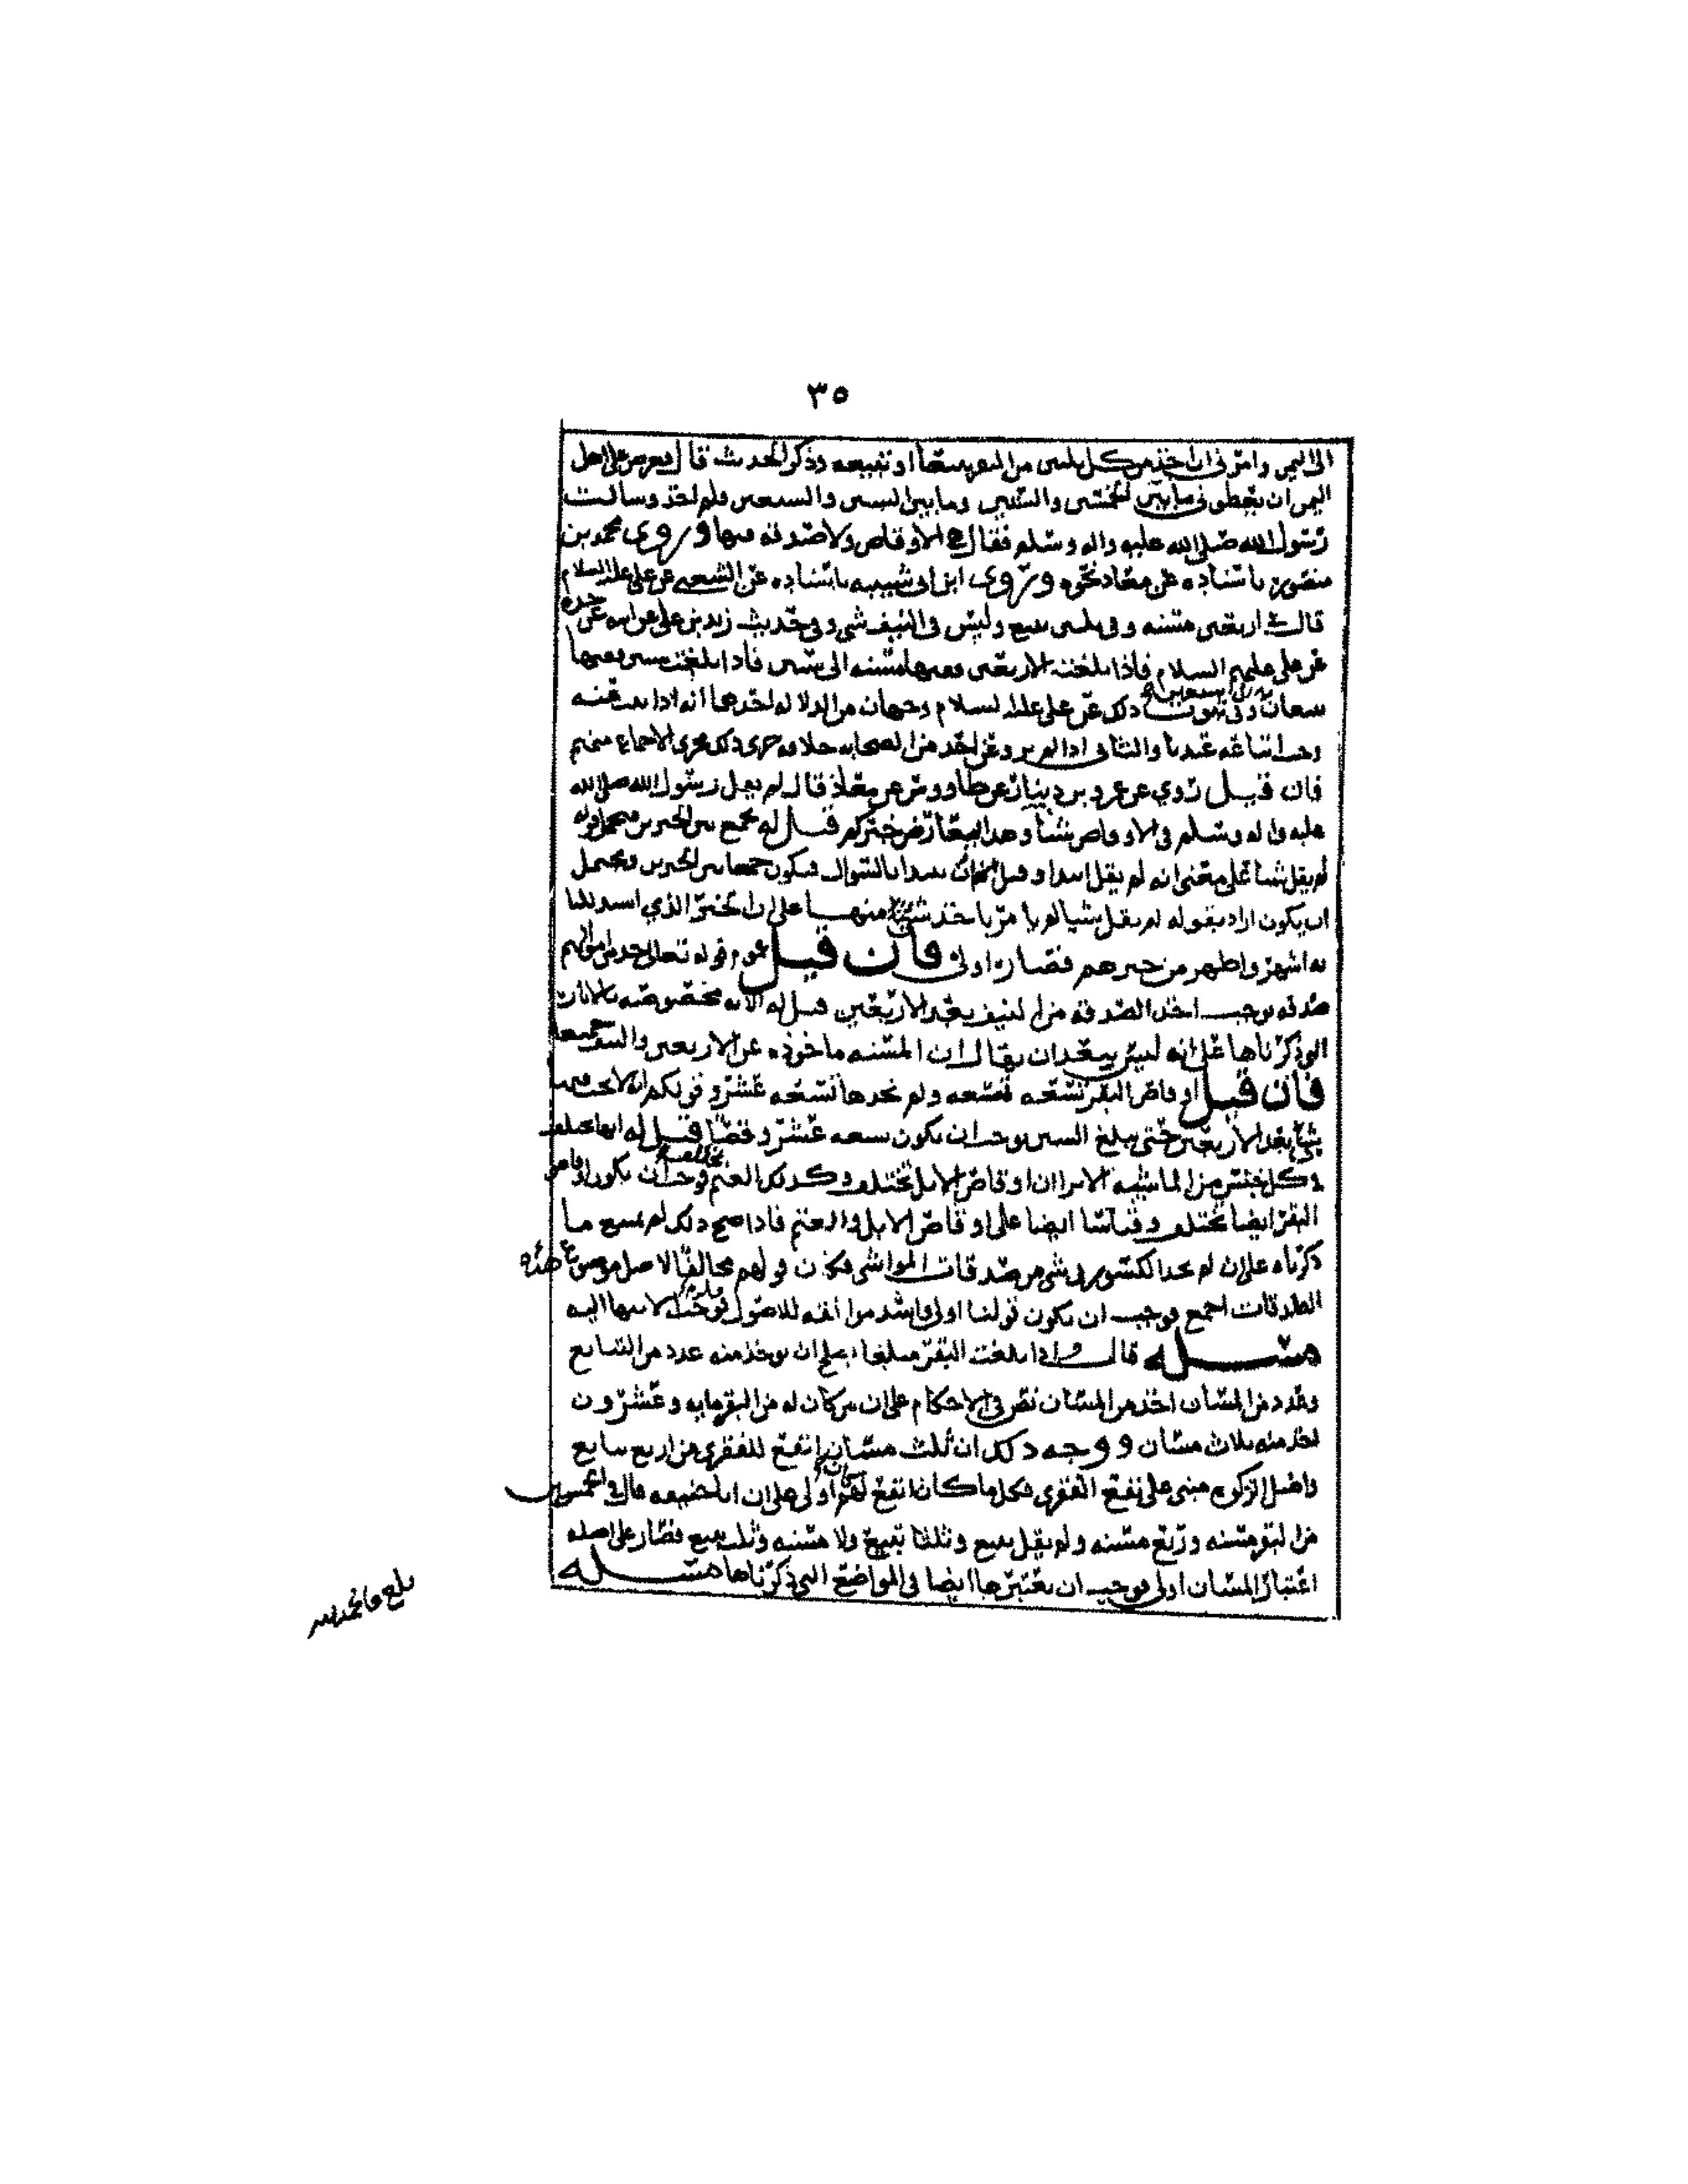 ٣٥
الى اليمن وامرني ان اخذ من كل ثلثين من البقر تبيعا او تبيعه وذكر الحديث قال فعرض علي اهل
اليمن ان يعطوني ما بين الخمسين والستين وما بين الستين والسبعين فلم اخذ وسالت
رسول الله صلى الله عليه واله وسلم فقال هي الاوقاص ولا صدقه فيها وروى محمد بن
منصور باسناده عن معاذ نحوه وروى ابن ابي شيبه باسناده عن الشعبي عن علي عليه السلام
قال في اربعين مسنه وفي ثلثين تبيع وليس في النيف شي وفي حديث زيد بن علي عن ابيه عن جده
عن علي عليهم السلام فاذا بلغت الاربعين ففيها مسنه الى ستين فاذا بلغت ستين ففيها
تبيعان وفي ثبوت ذلك عن علي عليه السلام وجهان من الدلاله احدهما انه اذا ثبت عنه
وجب اتباعه عندنا والثاني اذا لم يرو عن احد من الصحابه خلافه جرى ذلك مجرى الاجماع منهم
فان قيل روي عن عمرو بن دينار عن طاووس عن معاذ قال لم يقل رسول الله صلى الله
عليه واله وسلم في الاوقاص شيا وهذا يعارض خبركم قيل له يجمع بين الخبرين فيحمل قوله
لم يقل شيا على معنى انه لم يقل ابتدا وقيل ان يبتدا بالسوال فيكون جمعا بين الخبرين ويحتمل
ان يكون اراد بقوله لم يقل شيا لم يامر باخذ شي منها على ان الخبر الذي استدللنا
به اشهر واظهر من خبرهم فصار اولى فان قيل عموم قوله تعالى خذ من اموالهم
صدقه يوجب اخذ الصدقه من النيف بعد الاربعين قيل له الايه مخصوصه بالاثار
التي ذكرناها على انه ليس يبعد ان يقال ان المسنه ماخوذه عن الاربعين والنيف جميعا
فان قيل اوقاص البقر تسعه تسعه ولم نجدها تسعه عشر وقولكم انه لا يجب فيها
شي بعد الاربعين حتى يبلغ الستين يوجب ان يكون تسعه عشر وقصا قيل له انها تختلف
في كل جنس من الماشيه الا ترا ان اوقاص الابل تختلف وكذلك الغنم فوجب ان يكون اوقاص
البقر ايضا تختلف وقياسا ايضا على اوقاص الابل والغنم فاذا صح ذلك لم يمنع ما
ذكرناه على ان لم نجد الكسور في شي من صدقات المواشي فكان قولهم مخالفا لاصل موضوع هذه
الصدقات اجمع فوجب ان يكون قولنا اولى
مسئله قال واذا بلغت البقر مبلغا يصلح ان يوخذ منه عدد من التبايع
وعدد من المسان اخذ من المسان نص في الاحكام على ان من كان له من البقر مايه وعشرون
اخذ منه ثلاث مسان ووجه ذلك ان ثلث مسان انفع للفقرى من اربع تبايع
واصل الزكوه مبني على نفع الفقرى فكل ما كان انفع لهم كان اولى على ان ابا حنيفه قال في خمسين
من البقر مسنه وربع مسنه ولم يقل تبيع وثلثا تبيع ولا مسنه وثلث تبيع فصار على اصله
اعتبار المسان اولى فوجب ان نعتبرها ايضا في المواضع التي ذكرناها مسئله